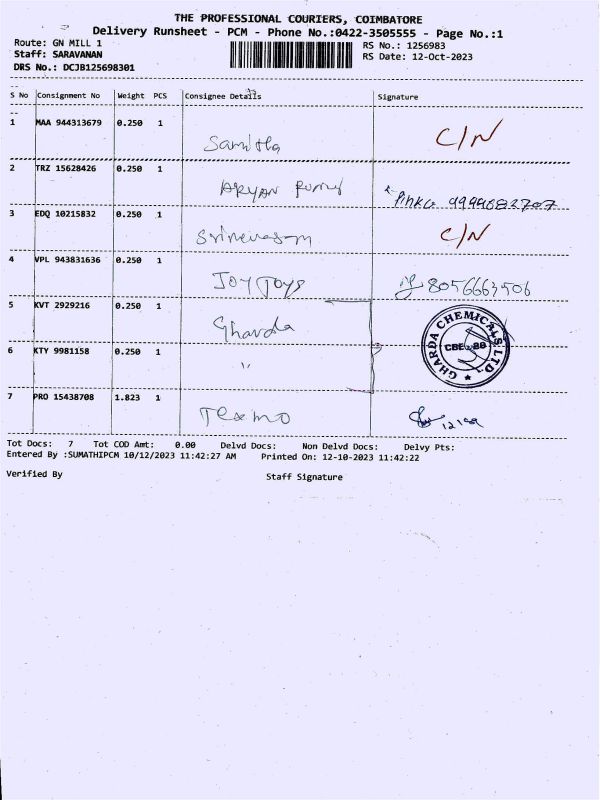 THE PROFESSIONAL COURIERS, COIMBATORE
Delivery Runsheet - PCM - Phone No.:0422-3505555 - Page No.:1
Route: GN MILL 1
Staff: SARAVANAN
DRS No.: DCJB125698301
RS No.: 1256983
RS Date: 12-Oct-2023
S No Consignment No Weight PCS Consignee Details Signature
1 MAA 944313679 0.250 1 Samitha C/N
2 TRZ 15628426 0.250 1 ARYAN
3 EDQ 10215832 0.250 1 C/N
4 VPL 943831636 0.250 1 JOY TOYS 8056663506
5 KVT 2929216 0.250 1 Gharda
GHARDA CHEMICALS LTD
6 KTY 9981158 0.250 1 "
7 PRO 15438708 1.823 1 Texmo
Tot Docs: 7 Tot COD Amt: 0.00 Delvd Docs: Non Delvd Docs: Delvy Pts:
Entered By :SUMATHIPCM 10/12/2023 11:42:27 AM Printed On: 12-10-2023 11:42:22
Verified By Staff Signature